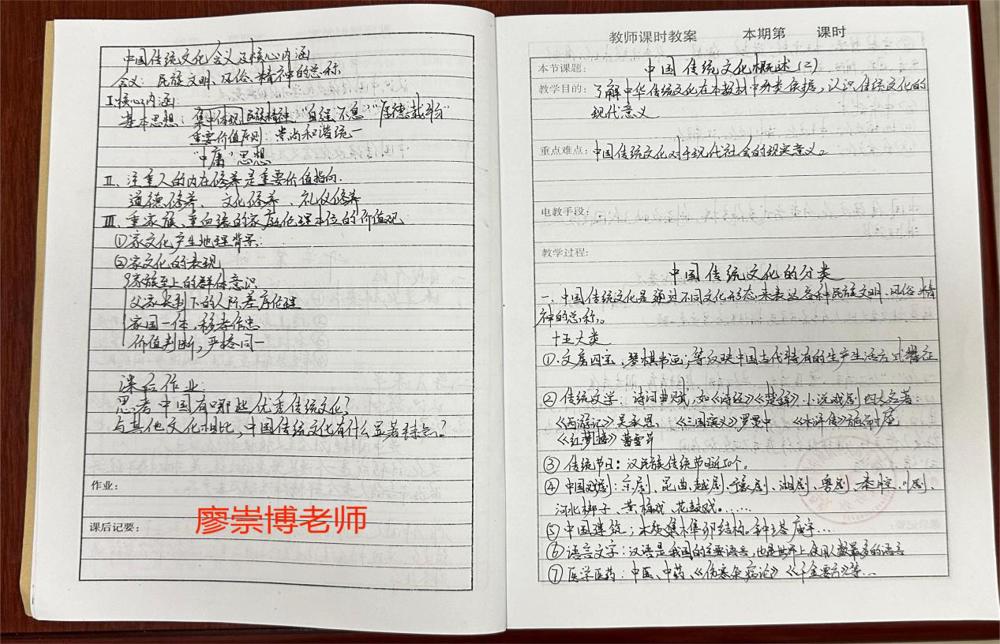 中国传统文化含义及核心内涵
含义：民族文明、风俗、精神的总称
I.核心内涵：
基本思想：集中体现民族精神"自强不息""厚德载物"
重要价值原则：崇尚和谐统一
"中庸"思想
II、注重人的内在修养是重要价值指向.
道德修养、文化修养、礼仪修养
III、重家族、重血缘的家庭伦理本位的价值观
①家文化产生地理背景：
②家文化的表现
家族至上的群体意识
父家长制下的人际差序伦理
家国一体、移孝作忠
价值判断，严格同一
课后作业：
思考中国有哪些优秀传统文化？
与其他文化相比，中国传统文化有什么显著特点？
作业：
课后记要：
廖崇博老师
教师课时教案 本期第 课时
本节课题： 中国传统文化概述(二)
教学目的：了解中华传统文化在本教材中分类依据，认识传统文化的
现代意义
重点难点：中国传统文化对于现代社会的现实意义。
电教手段：
教学过程：
中国传统文化的分类
一、中国传统文化是通过不同文化形态来表达各种民族文明、风俗、精
神的总称。
十五大类
①.文房四宝，琴棋书画，等汉对中国古代特有的生产生活方式
② 传统文学：诗词曲赋，如《诗经》《楚辞》小说戏剧 四大名著：
《西游记》吴承恩、《三国演义》罗贯中 《水浒传》施耐庵
《红楼梦》曹雪芹
③ 传统节日：汉民族传统节日近50个。
④ 中国戏剧：京剧、昆曲、越剧、豫剧、湘剧、粤剧、秦腔、川剧、
河北梆子、黄梅戏、花鼓戏……
⑤ 中国建筑：木质集木隼卯结构。钟 塔 庙宇…
⑥ 语言文字：汉语是我国的主要语言，也是世界上使用人数最多的语言
⑦ 医学医药：中医、中药、《伤寒杂病论》《千金要方》等…